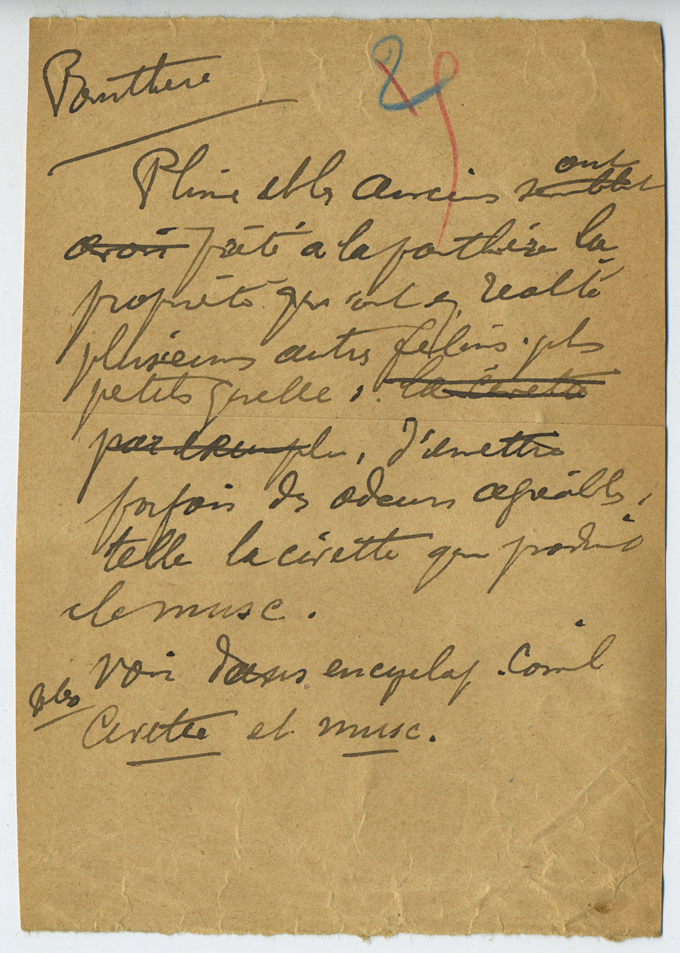 Panthere
Pline et les anciens semblent ont
avoir prêté a la panthère la
propriété qu'ont en realité
plusieurs autres félins plus
petits qu'elle, la civette
par exemple, d'émettre
parfois des odeurs agréables,
telle la civette qui produit
le musc.
voir dans encyclop.
Civette et musc.